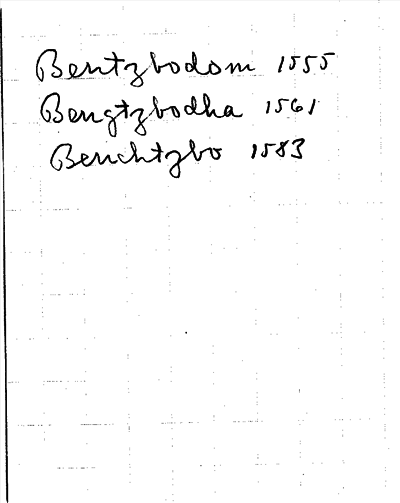 Bentzbodom 1555
Bengtzbodha 1561
Benchtzbo 1583